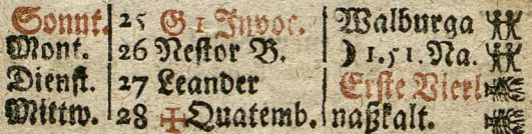 Sonnt. 25 G 1 Invoc. Walburga
Mont. 26 Nestor B. ☽ 1.51. Na.
Dienst. 27 Leander Erste Vierl
Mittw. 28 ✠Quatemb. naßkalt.